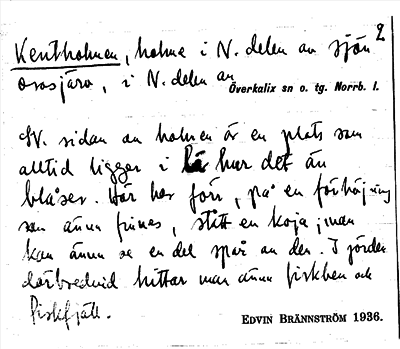 2
Kentholmen, holme i N. delen av sjön
Orasjärv, i N. delen av
Överkalix sn o. tg. Norrb. l.
N. sidan av holmen är en plats som
alltid ligger i lä hur det än
blåser. Här har förr, på en förhöjning
som ännu finnes, stått en koja; man
kan ännu se en del spår av den. I jorden
därbredvid hittar man ännu fiskben och
fiskfjäll.
EDVIN BRÄNNSTRÖM 1936.